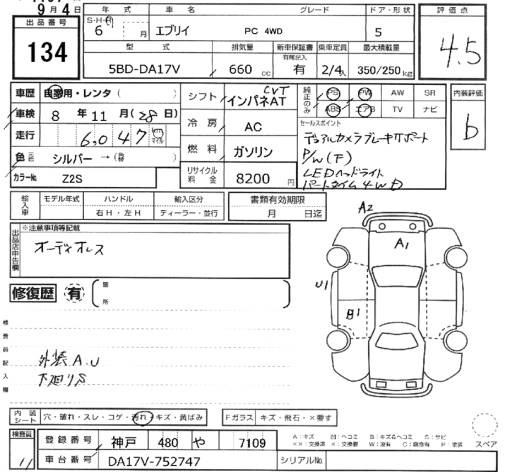 9月4日
出品番号
134
年式 車名 グレード ドア・形状
S・H・R 6 年 月 エブリイ PC 4WD 5
型式 排気量 新車保証書 乗車定員 最大積載量
有無記入
5BD-DA17V 660 cc 有 2/4人 350/250kg
評価点
4.5
内装評価
b
車歴 自家用・レンタ( )
車検 8年 11月(28日)
走行 6,047
色 シルバー →( )
カラーNo Z2S
シフト CVT インパネAT
冷房 AC
燃料 ガソリン
リサイクル料金 8200円
純正のみ PS PW AW SR
ABS エアB TV ナビ
セールスポイント
デュアルカメラブレーキサポート
P/W(F)
LEDヘッドライト
パートタイム4WD
輸入車 モデル年式 ハンドル 輸入区分
右H・左H ディーラー・並行
書類有効期限
月 日迄
出品店申告欄
※注意事項等記載
オーディオレス
修復歴 有 箇所
検査員記入欄
外装A.U
下廻りS
A2
A1
U1
B1
内装シート 穴・破れ・スレ・コゲ・汚れ・キズ・黄ばみ
Fガラス キズ・飛石・×要す
検査員
登録番号 神戸 480 や 7109
車台番号 DA17V-752747
シリアルNo.
A:キズ U:ヘコミ B:キズ&ヘコミ S:サビ
スペア